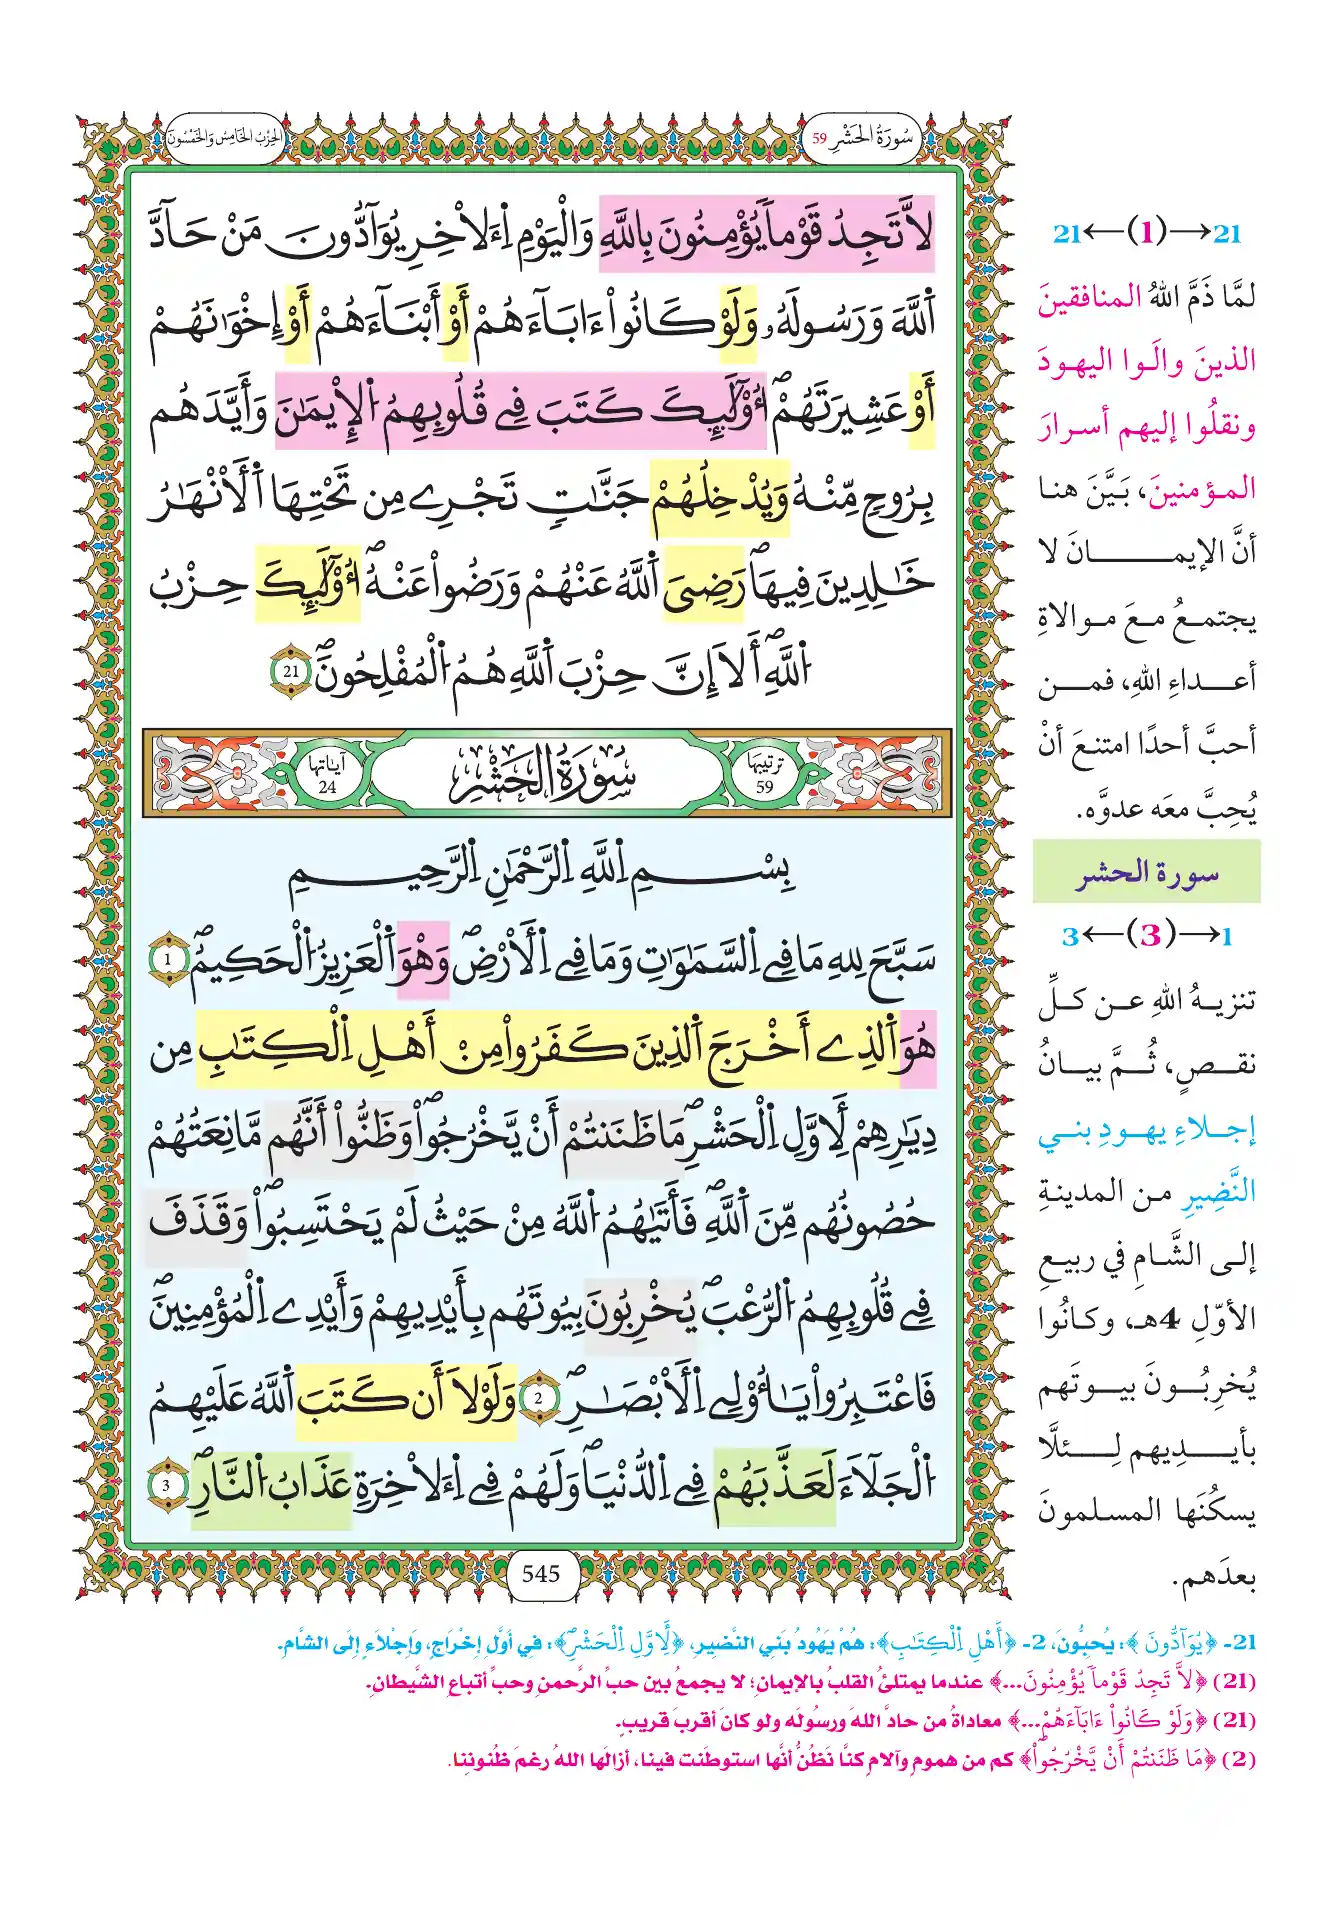 سُورَةُ الحَشْرِ 59
الحِزْبُ الخَامِسُ وَالخَمْسُونَ
لاَّ تَجِدُ قَوْماً يُؤْمِنُونَ بِاللَّهِ وَالْيَوْمِ اِ۬ءَلاْخِرِ يُوَآدُّونَ مَنْ حَآدَّ
اَ۬للَّهَ وَرَسُولَهُۥ وَلَوْ كَانُواْ ءَابَآءَهُمْ أَوْ أَبْنَآءَهُمْ أَوْ إِخْوَٰنَهُمْ
أَوْ عَشِيرَتَهُمْۖ أُوْلَٰٓئِكَ كَتَبَ فِے قُلُوبِهِمُ اُ۬لْإِيمَٰنَ وَأَيَّدَهُم
بِرُوحٍ مِّنْهُ وَيُدْخِلُهُمْ جَنَّٰتٍ تَجْرِے مِن تَحْتِهَا اَ۬لْأَنْهَٰرُ
خَٰلِدِينَ فِيهَاۖ رَضِيَ اَ۬للَّهُ عَنْهُمْ وَرَضُواْ عَنْهُۖ أُوْلَٰٓئِكَ حِزْبُ
اُ۬للَّهِۖ أَلَآ إِنَّ حِزْبَ اَ۬للَّهِ هُمُ اُ۬لْمُفْلِحُونَۖ 21
ترتيبها 59
سُورَةُ الحَشْرِ
آياتها 24
بِسْمِ اِ۬للَّهِ اِ۬لرَّحْمَٰنِ اِ۬لرَّحِيمِ
سَبَّحَ لِلهِ مَا فِے اِ۬لسَّمَٰوَٰتِ وَمَا فِے اِ۬لْأَرْضِۖ وَهْوَ اَ۬لْعَزِيزُ اُ۬لْحَكِيمُۖ 1
هُوَ اَ۬لذِے أَخْرَجَ اَ۬لذِينَ كَفَرُواْ مِنْ أَهْلِ اِ۬لْكِتَٰبِ مِن
دِيَٰرِهِمْ لِأَوَّلِ اِ۬لْحَشْرِۖ مَا ظَنَنتُمْ أَنْ يَّخْرُجُواْۖ وَظَنُّواْ أَنَّهُم مَّانِعَتُهُمْ
حُصُونُهُم مِّنَ اَ۬للَّهِۖ فَأَتَىٰهُمُ اُ۬للَّهُ مِنْ حَيْثُ لَمْ يَحْتَسِبُواْۖ وَقَذَفَ
فِے قُلُوبِهِمُ اُ۬لرُّعْبَۖ يُخْرِبُونَ بِيُوتَهُم بِأَيْدِيهِمْ وَأَيْدِے اِ۬لْمُؤْمِنِينَۖ
فَاعْتَبِرُواْ يَٰٓأُوْلِے اِ۬لْأَبْصَٰرِۖ 2 وَلَوْلَآ أَن كَتَبَ اَ۬للَّهُ عَلَيْهِمُ
اُ۬لْجَلَآءَ لَعَذَّبَهُمْ فِے اِ۬لدُّنْيَاۖ وَلَهُمْ فِے اِ۬ءَلاْخِرَةِ عَذَابُ اُ۬لنَّارِۖ 3
545
21←(1)→21
لمَّا ذَمَّ اللهُ المنافقينَ
الذينَ والَوا اليهودَ
ونقلُوا إليهم أسرارَ
المؤمنينَ، بَيَّنَ هنا
أنَّ الإيمانَ لا
يجتمعُ معَ موالاةِ
أعداءِ اللهِ، فمن
أحبَّ أحدًا امتنعَ أنْ
يُحِبَّ معَه عدوَّه.
سورة الحشر
3←(3)→1
تنزيهُ اللهِ عن كلِّ
نقصٍ، ثُمَّ بيانُ
إجلاءِ يهودِ بني
النَّضِيرِ من المدينةِ
إلى الشَّامِ في ربيعِ
الأوّلِ 4هـ، وكانُوا
يُخرِبُونَ بيوتَهم
بأيديهم لِئلَّا
يسكُنَها المسلمونَ
بعدَهم.
21- ﴿يُوَآدُّونَ﴾: يُحِبُّونَ، 2- ﴿أَهْلِ اِ۬لْكِتَٰبِ﴾: هُمْ يَهُودُ بَنِي النَّضِيرِ، ﴿لِأَوَّلِ اِ۬لْحَشْرِۖ﴾: فِي أَوَّلِ إِخْرَاجٍ، وَإِجْلَاءٍ إِلَى الشَّامِ.
(21) ﴿لاَّ تَجِدُ قَوْماً يُؤْمِنُونَ...﴾ عندما يمتلئُ القلبُ بالإيمانِ؛ لا يجمعُ بين حبِّ الرَّحمنِ وحبِّ أتباعِ الشَّيطانِ.
(21) ﴿وَلَوْ كَانُواْ ءَابَآءَهُمْ...﴾ معاداةُ من حادَّ اللهَ ورسُولَه ولو كانَ أقربَ قريبٍ.
(2) ﴿مَا ظَنَنتُمْ أَنْ يَّخْرُجُواْۖ﴾ كم من همومٍ وآلامٍ كنَّا نَظُنُّ أنَّها استوطَنت فينا، أزالَها اللهُ رغمَ ظُنُونِنا.